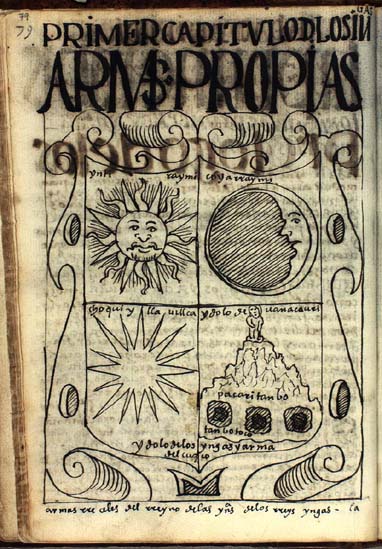 79
79
PRIMER CAPITVLO D LOS IN
GAS
ARMAS PROPIAS
ynti raymi
coya rraymi
choqui ylla uillca
ydolo de uanacauri
pacaritanbo
tanbotoco
ydolo de los yngas y arma
del cuzco
armas rreales del rreyno de las yns de los rreys yngas - la